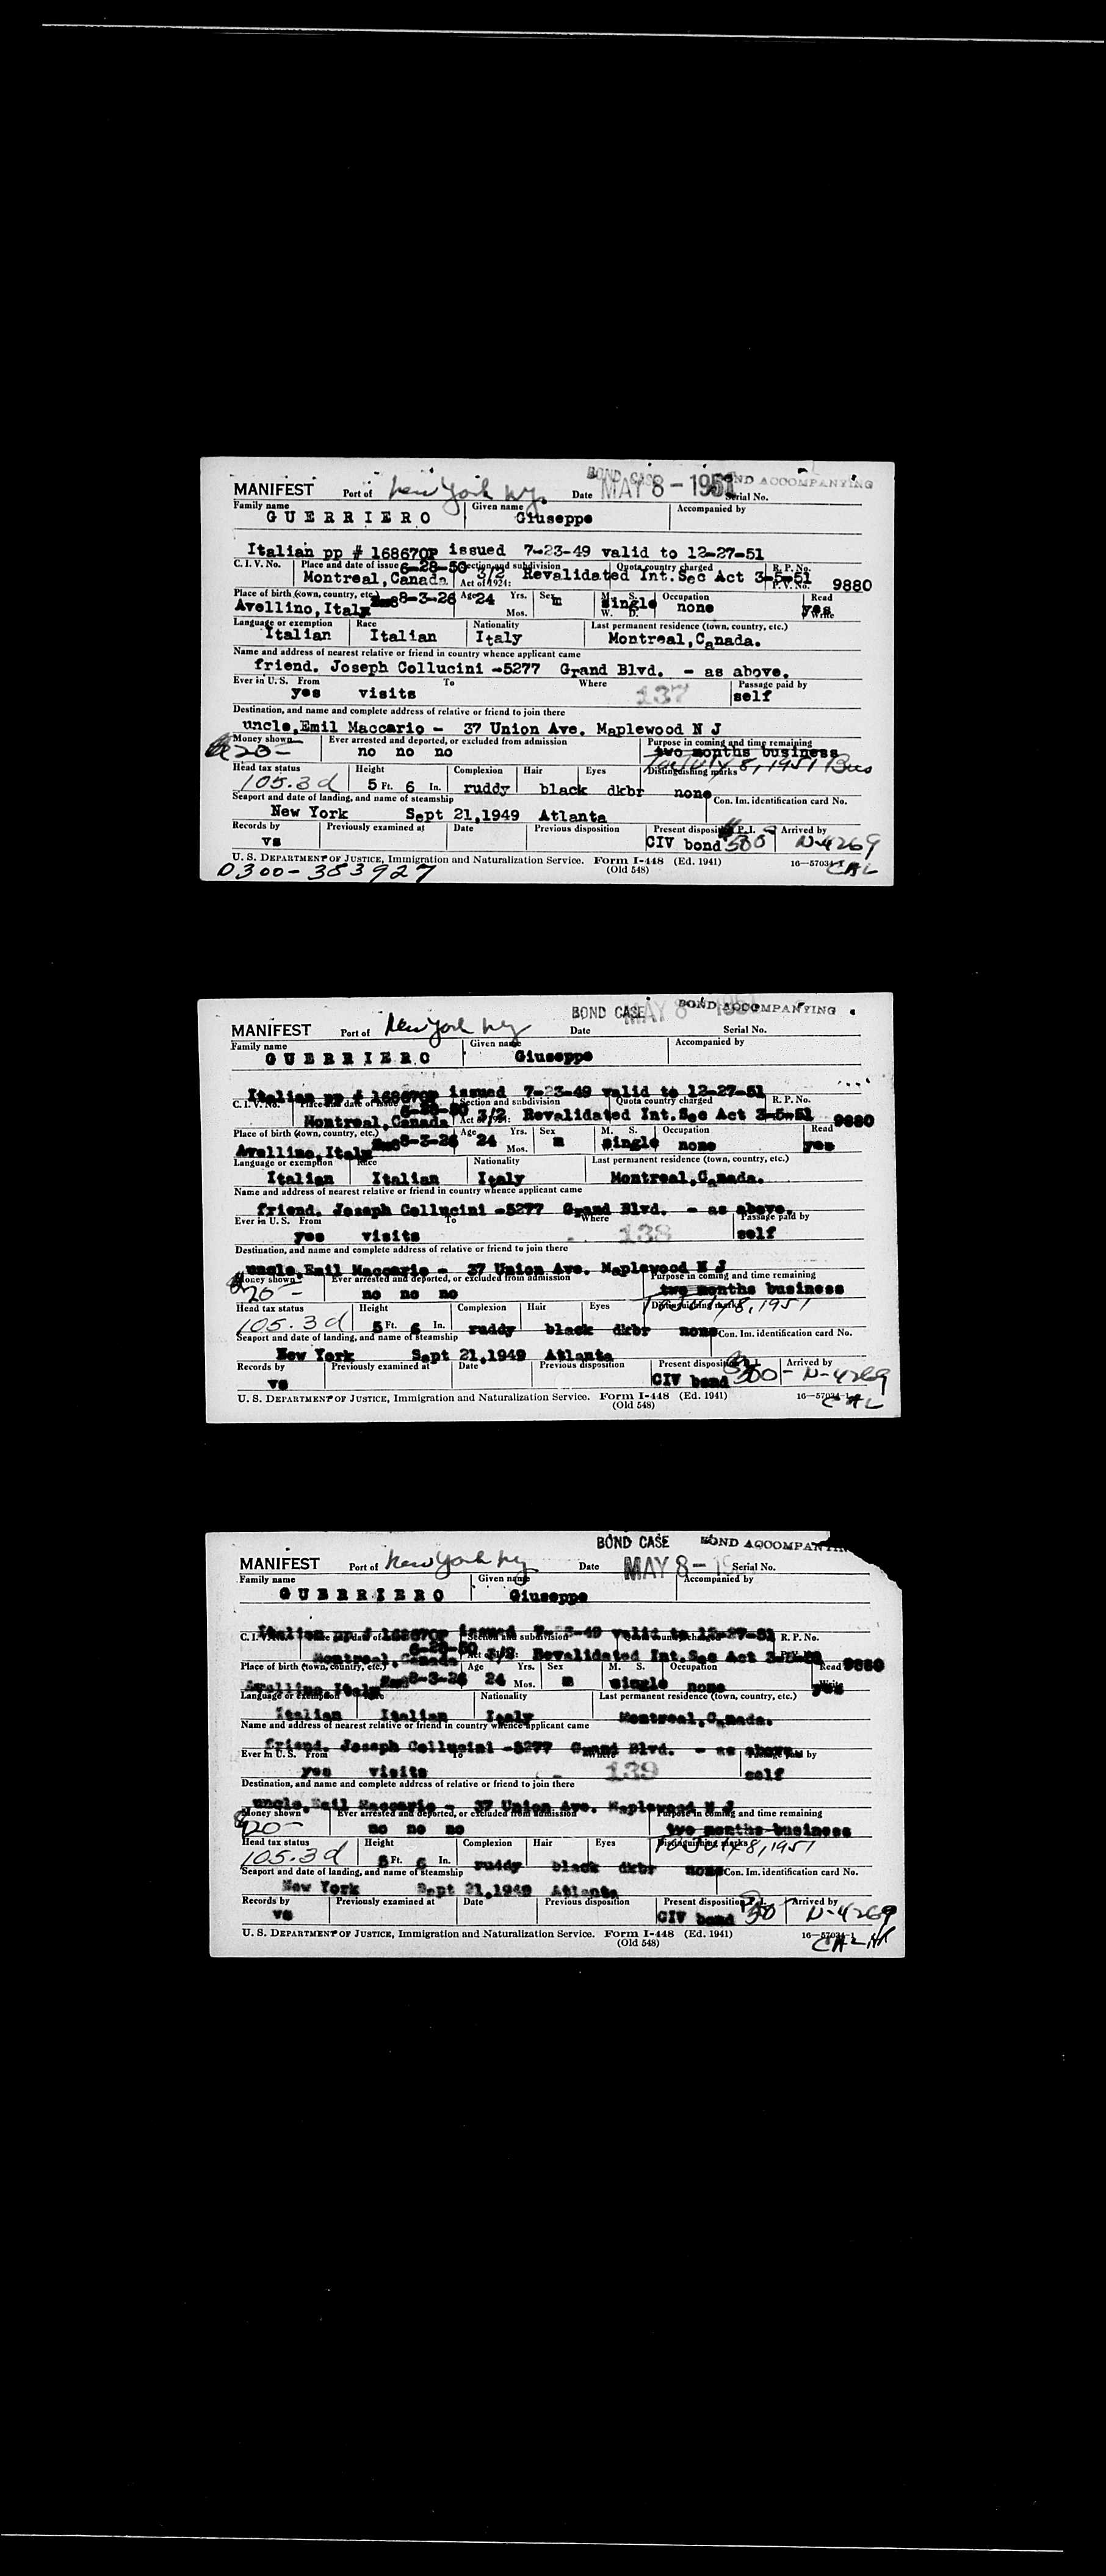 BOND CASE BOND ACCOMPANYING
MANIFEST Port of New York NY. Date MAY 8 - 1951 Serial No.
Family name Given name Accompanied by
GUERRIERO Giuseppe
Italian pp # 168670P issued 7-23-49 valid to 12-27-51
C. I. V. No. Place and date of issue 6-28-50 Section and subdivision Quota country charged R. P. No.
Montreal, Canada Act of 1924: 3/2 Revalidated Int.Sec Act 3-5-51 P. V. No. 9880
Place of birth (town, country, etc.) Age Yrs. Sex M. S. Occupation Read
Avellino, Italy 8-3-26 24 Mos. m single W. D. none yes Write
Language or exemption Race Nationality Last permanent residence (town, country, etc.)
Italian Italian Italy Montreal, Canada.
Name and address of nearest relative or friend in country whence applicant came
friend. Joseph Collucini -5277 Grand Blvd. - as above.
Ever in U. S. From To Where Passage paid by
yes visits 137 self
Destination, and name and complete address of relative or friend to join there
uncle, Emil Maccario - 37 Union Ave. Maplewood N J
Money shown Ever arrested and deported, or excluded from admission Purpose in coming and time remaining
20- no no no two months business
to July 8, 1951 Bus
Head tax status Height Complexion Hair Eyes Distinguishing marks
105.3d 5 Ft. 6 In. ruddy black dkbr none
Seaport and date of landing, and name of steamship Con. Im. identification card No.
New York Sept 21,1949 Atlanta
Records by Previously examined at Date Previous disposition Present disposition P.I. Arrived by
vs CIV bond $500 N-4269
U. S. DEPARTMENT OF JUSTICE, Immigration and Naturalization Service. Form I-448 (Ed. 1941) 16—57034-1
(Old 548) CAL
0300-383927
BOND CASE MAY 8 - 1951 BOND ACCOMPANYING
MANIFEST Port of New York NY Date Serial No.
Family name Given name Accompanied by
GUERRIERO Giuseppe
Italian pp # 168670P issued 7-23-49 valid to 12-27-51
C. I. V. No. Place and date of issue 6-28-50 Section and subdivision Quota country charged R. P. No.
Montreal, Canada Act of 1924: 3/2 Revalidated Int.Sec Act 3-5-51 9880
Place of birth (town, country, etc.) Age Yrs. Sex M. S. Occupation Read
Avellino, Italy 8-3-26 24 Mos. m single none yes
Language or exemption Race Nationality Last permanent residence (town, country, etc.)
Italian Italian Italy Montreal, Canada.
Name and address of nearest relative or friend in country whence applicant came
friend. Joseph Collucini -5277 Grand Blvd. - as above.
Ever in U. S. From To Where Passage paid by
yes visits 138 self
Destination, and name and complete address of relative or friend to join there
uncle, Emil Maccario - 37 Union Ave. Maplewood N J
Money shown Ever arrested and deported, or excluded from admission Purpose in coming and time remaining
20- no no no two months business
to July 8, 1951
Head tax status Height Complexion Hair Eyes Distinguishing marks
105.3d 5 Ft. 6 In. ruddy black dkbr none
Seaport and date of landing, and name of steamship Con. Im. identification card No.
New York Sept 21,1949 Atlanta
Records by Previously examined at Date Previous disposition Present disposition Arrived by
vs CIV bond 500- N-4269
U. S. DEPARTMENT OF JUSTICE, Immigration and Naturalization Service. Form I-448 (Ed. 1941) 16—57034-1
(Old 548) CAL
BOND CASE BOND ACCOMPANYING
MANIFEST Port of New York NY Date MAY 8 - 19 Serial No.
Family name Given name Accompanied by
GUERRIERO Giuseppe
Italian pp # 168670P issued 7-23-49 valid to 12-27-51
C. I. V. No. Place and date of issue 6-28-50 Section and subdivision Quota country charged R. P. No.
Montreal, Canada Act of 1924: 3/2 Revalidated Int.Sec Act 3-5-51 9880
Place of birth (town, country, etc.) Age Yrs. Sex M. S. Occupation Read
Avellino, Italy 8-3-26 24 Mos. m single none yes Write
Language or exemption Race Nationality Last permanent residence (town, country, etc.)
Italian Italian Italy Montreal, Canada.
Name and address of nearest relative or friend in country whence applicant came
friend. Joseph Collucini -5277 Grand Blvd. - as above.
Ever in U. S. From To Where Passage paid by
yes visits 139 self
Destination, and name and complete address of relative or friend to join there
uncle, Emil Maccario - 37 Union Ave. Maplewood N J
Money shown Ever arrested and deported, or excluded from admission Purpose in coming and time remaining
20- no no no two months business
to July 8, 1951
Head tax status Height Complexion Hair Eyes Distinguishing marks
105.3d 5 Ft. 6 In. ruddy black dkbr none
Seaport and date of landing, and name of steamship Con. Im. identification card No.
New York Sept 21,1949 Atlanta
Records by Previously examined at Date Previous disposition Present disposition Arrived by
vs CIV bond N-4269
U. S. DEPARTMENT OF JUSTICE, Immigration and Naturalization Service. Form I-448 (Ed. 1941) 16—57034-1
(Old 548) CAL